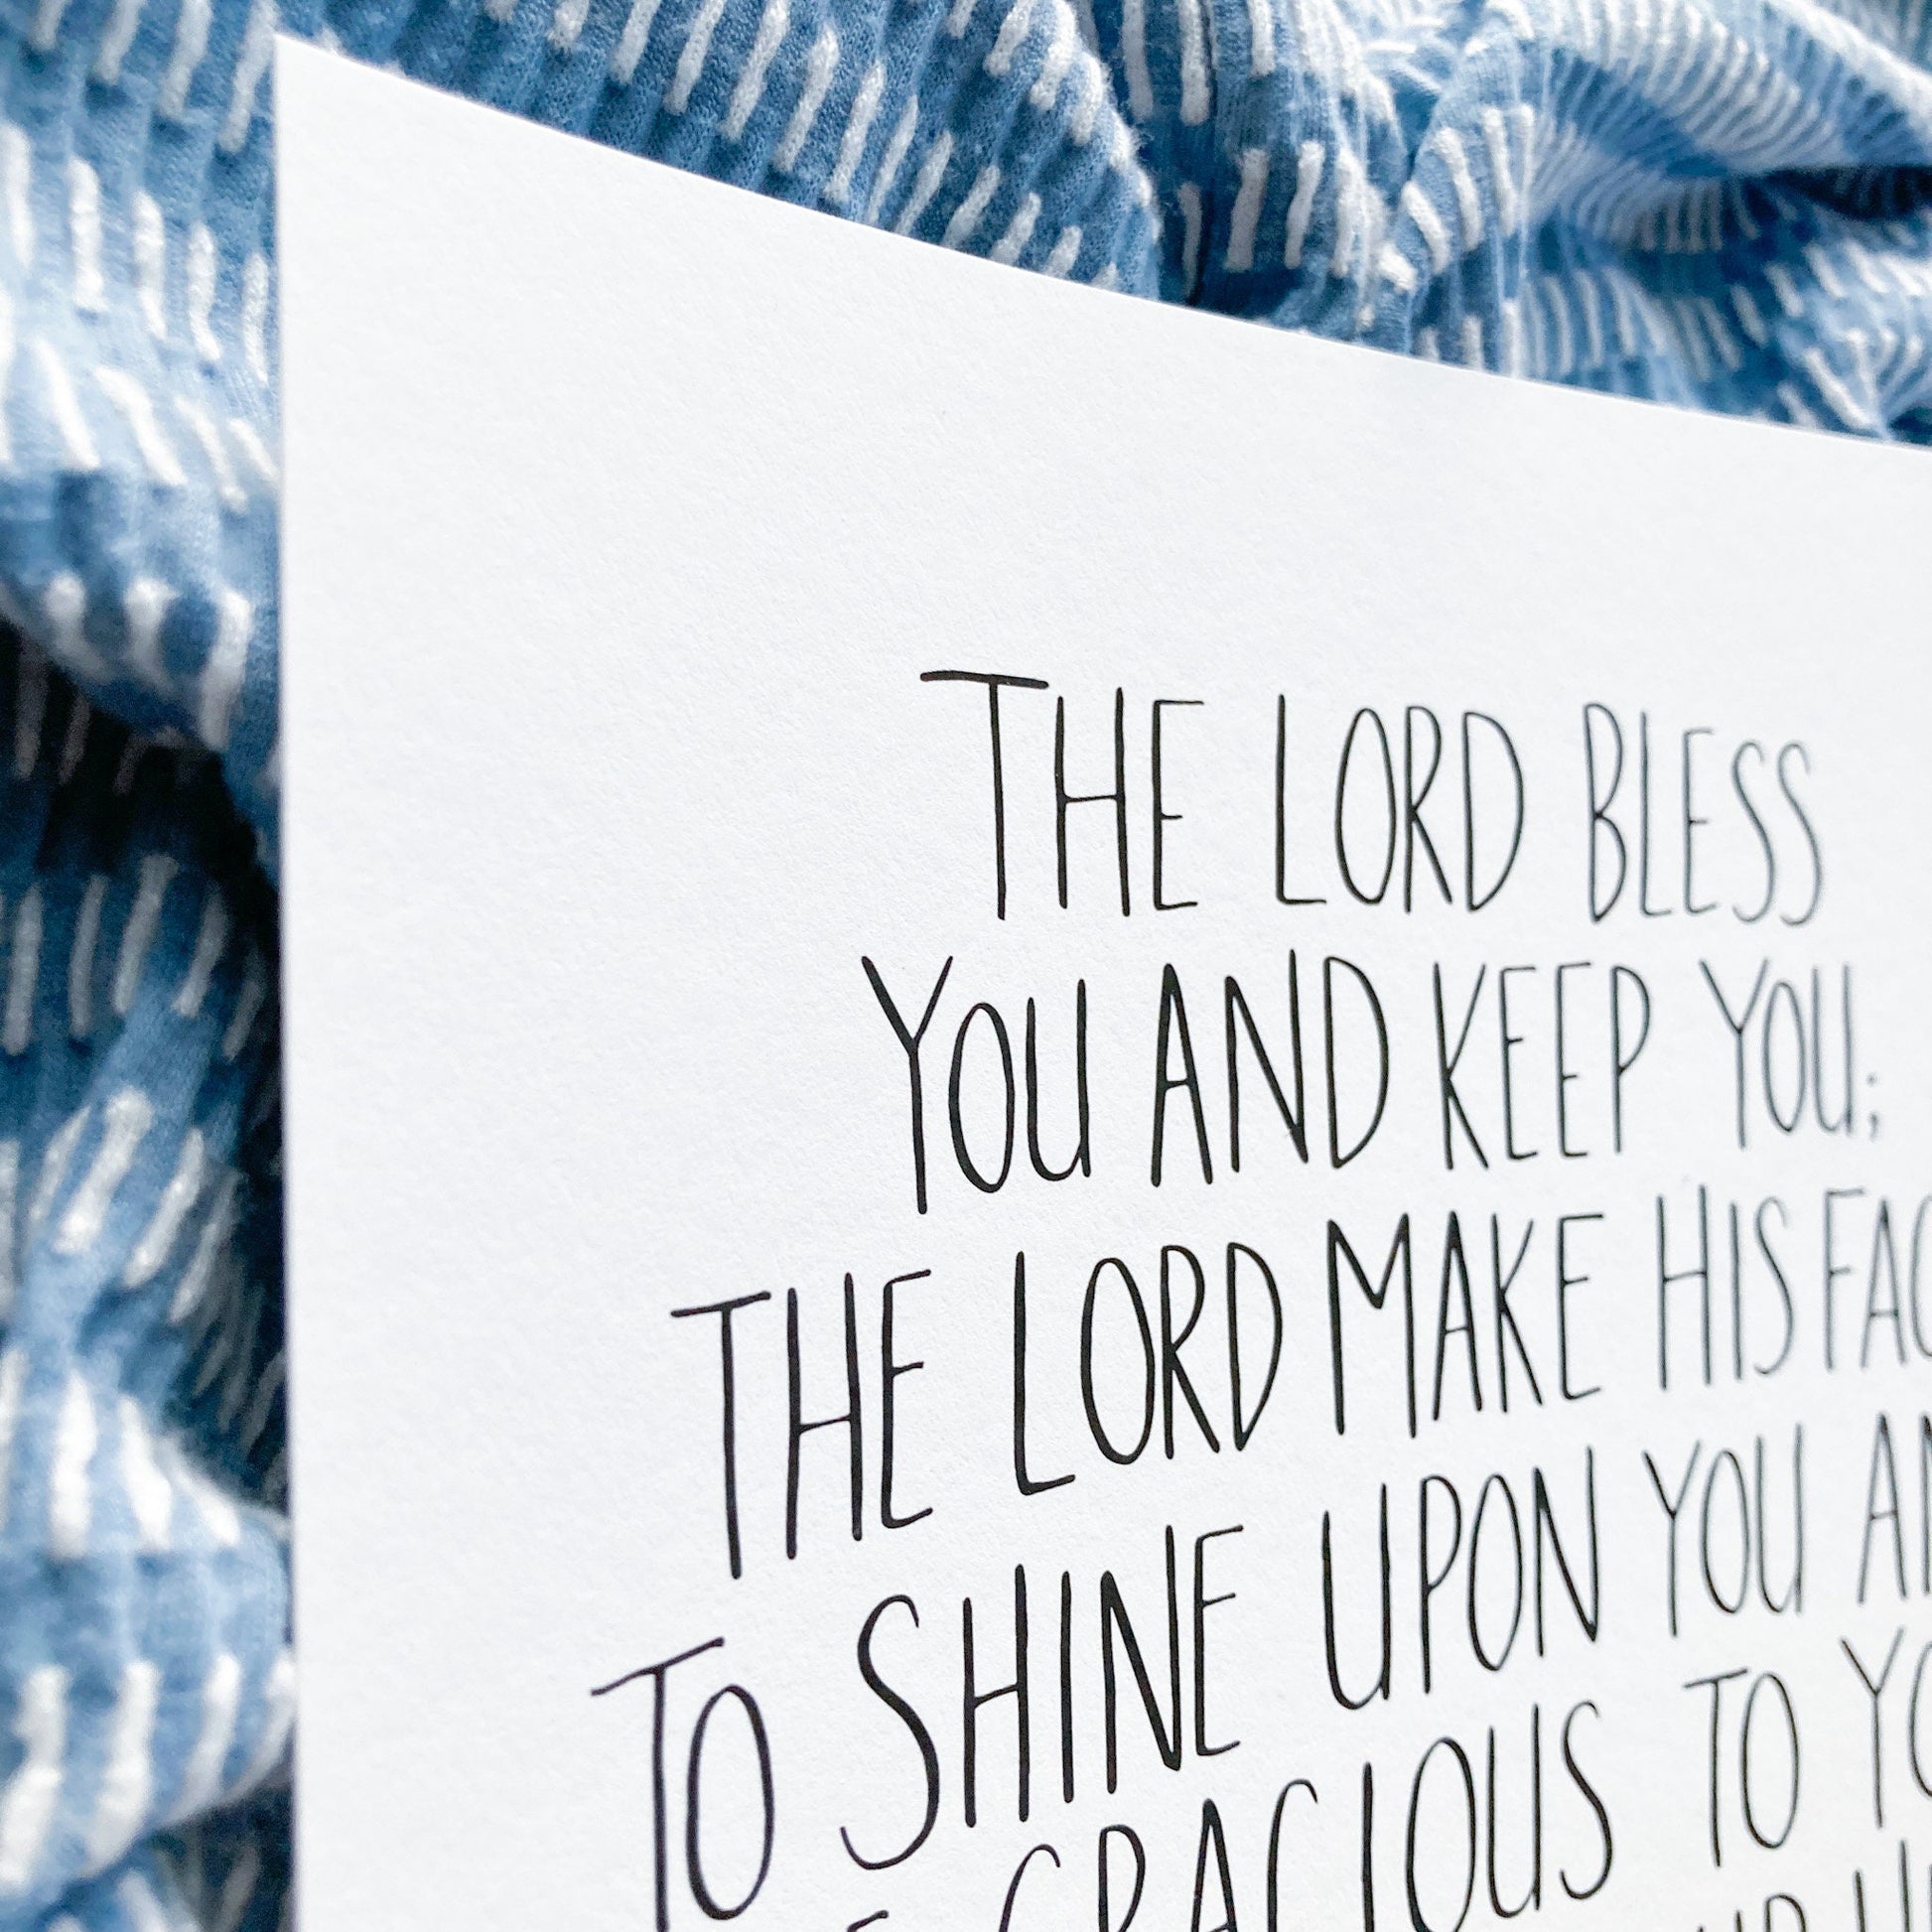 THE LORD BLESS
YOU AND KEEP YOU;
THE LORD MAKE HIS FAC
TO SHINE UPON YOU AN
GRACIOUS TO YO